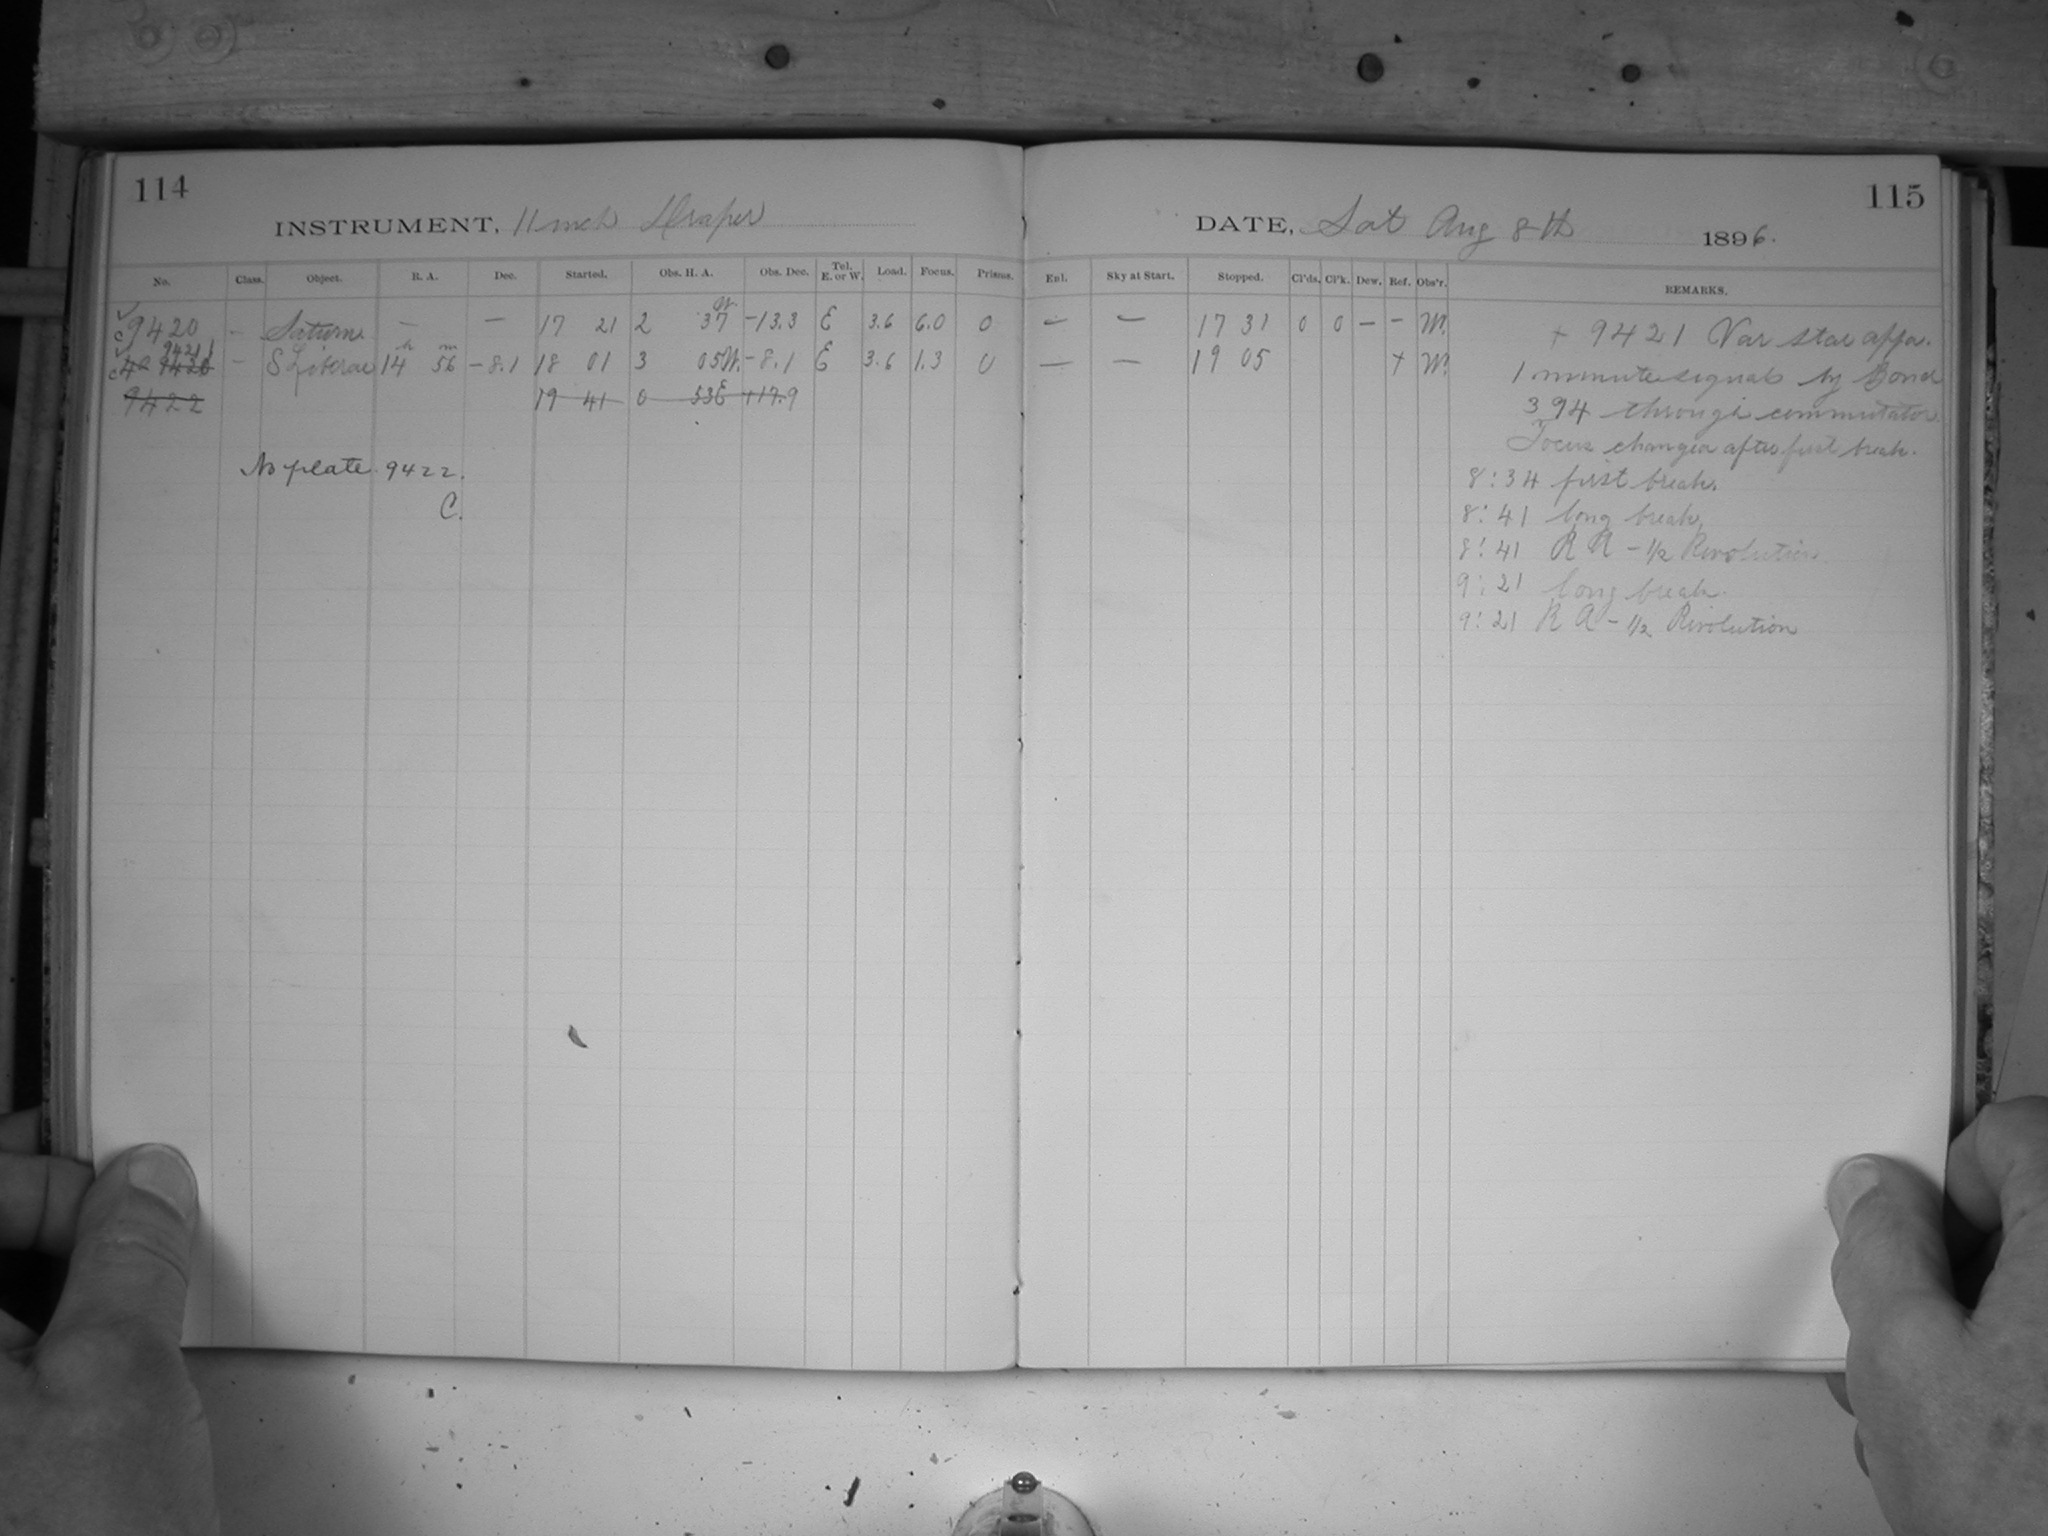 114
INSTRUMENT, 11 inch Draper
No. Class. Object. R. A. Dec. Started. Obs. H. A. Obs. Dec. Tel. E. or W. Load. Focus. Prisms.
9420 – Saturn – – 17 21 2 37 W. -13.3 E 3.6 6.0 0
9421 – S Librae 14 h 56 m -8.1 18 01 3 05 W. -8.1 E 3.6 1.3 0
9422 19 41 0 53 E +17.9
No plate 9422.
C.
115
DATE, Sat Aug 8th 1896.
Enl. Sky at Start. Stopped. Cl'ds. Cl'k. Dew. Ref. Obs'r. REMARKS.
– – 17 31 0 0 – – W.
— — 19 05 + W.
+ 9421 Var star appa.
1 minute signals by Bond
394 through commutator.
Focus changed after first break.
8:34 first break.
8:41 long break.
8:41 R A - 1/2 Revolution
9:21 long break.
9:21 R A - 1/2 Revolution